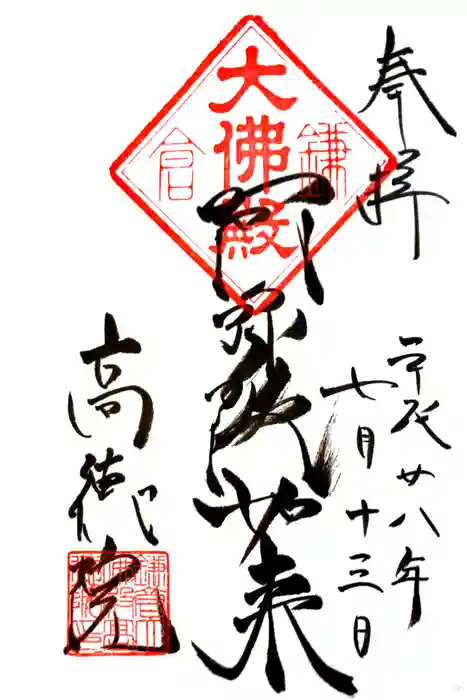 奉拝
平成廿八年
七月十三日
大佛殿
鎌倉
阿弥陀如来
高徳院